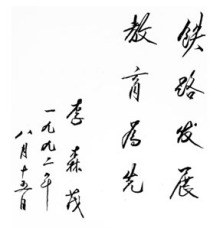 铁路发展
教育为先
李森茂
一九九二年
八月十五日